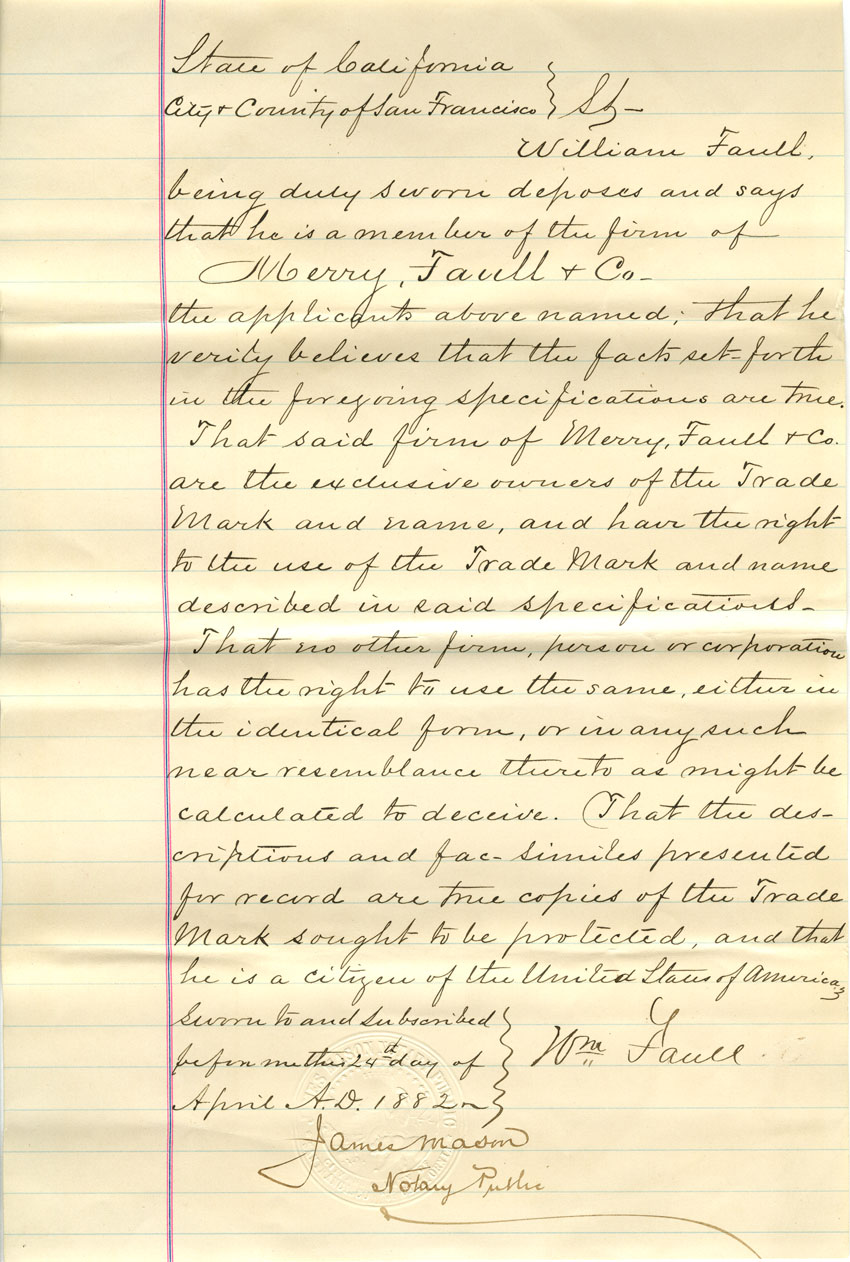 State of California
City & County of San Francisco } SS–
William Faull,
being duly sworn deposes and says
that he is a member of the firm of
Merry, Faull & Co–
the applicants above named; that he
verily believes that the facts set-forth
in the foregoing specifications are true.
That said firm of Merry, Faull & Co.
are the exclusive owners of the Trade
Mark and name, and have the right
to the use of the Trade Mark and name
described in said specifications–
That no other firm, person or corporation
has the right to use the same, either in
the identical form, or in any such
near resemblance thereto as might be
calculated to deceive. (That the des-
criptions and fac-similes presented
for record are true copies of the Trade
Mark sought to be protected, and that
he is a citizen of the United States of America
Sworn to and subscribed
before me this 24th day of
April A.D. 1882
Wm Faull
James Mason
Notary Public